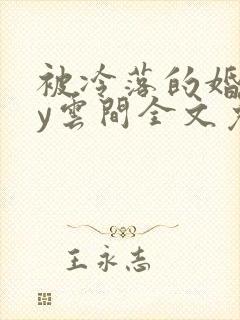 被冷落的婚
y雲間全文
王永志